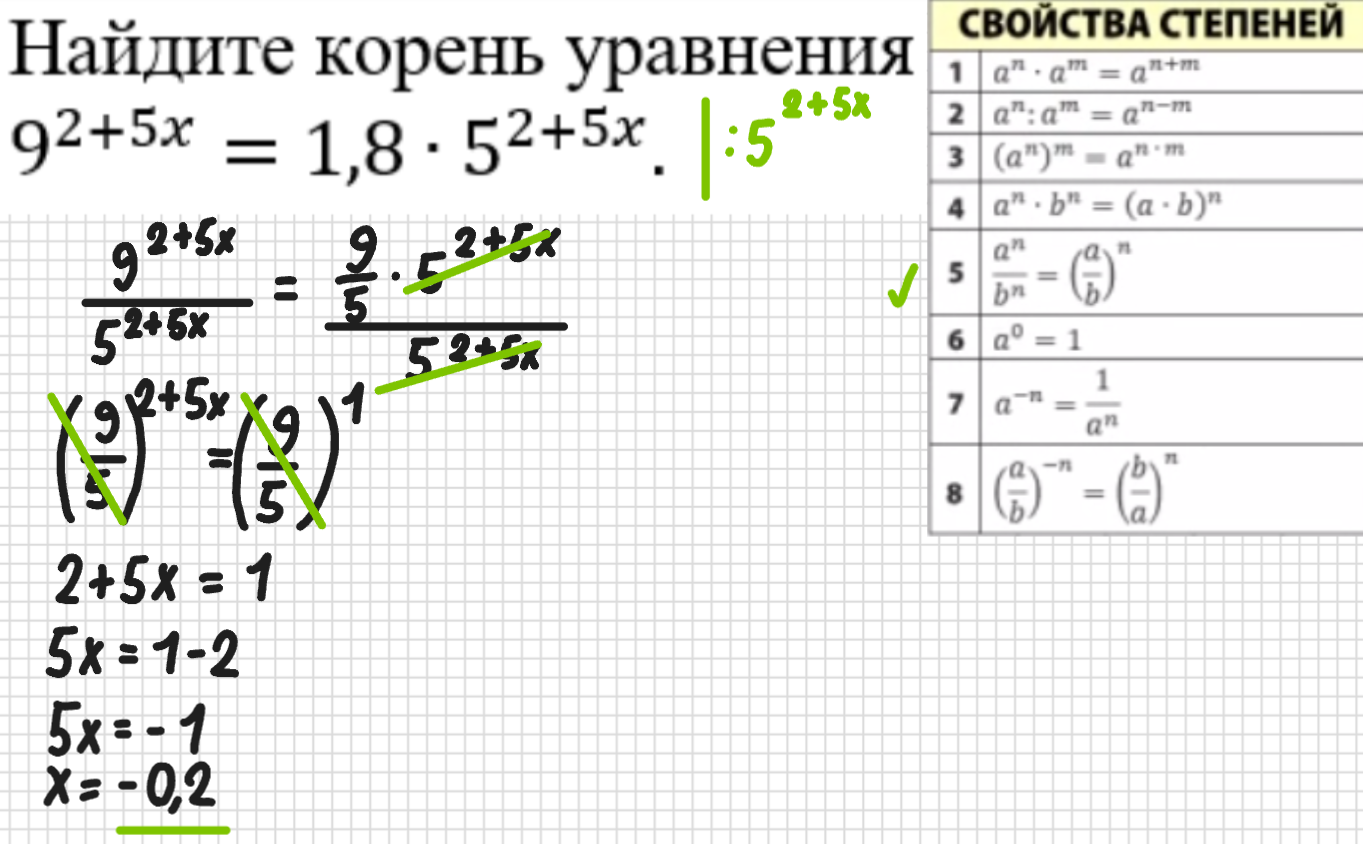 Найдите корень уравнения
9^{2+5x} = 1,8 · 5^{2+5x}. | :5^{2+5x}
\frac{9^{2+5x}}{5^{2+5x}} = \frac{\frac{9}{5} · 5^{2+5x}}{5^{2+5x}}
(\frac{9}{5})^{2+5x} = (\frac{9}{5})^1
2+5x = 1
5x = 1-2
5x = -1
x = -0,2
СВОЙСТВА СТЕПЕНЕЙ
1 a^n · a^m = a^{n+m}
2 a^n : a^m = a^{n-m}
3 (a^n)^m = a^{n·m}
4 a^n · b^n = (a · b)^n
✓ 5 \frac{a^n}{b^n} = (\frac{a}{b})^n
6 a^0 = 1
7 a^{-n} = \frac{1}{a^n}
8 (\frac{a}{b})^{-n} = (\frac{b}{a})^n